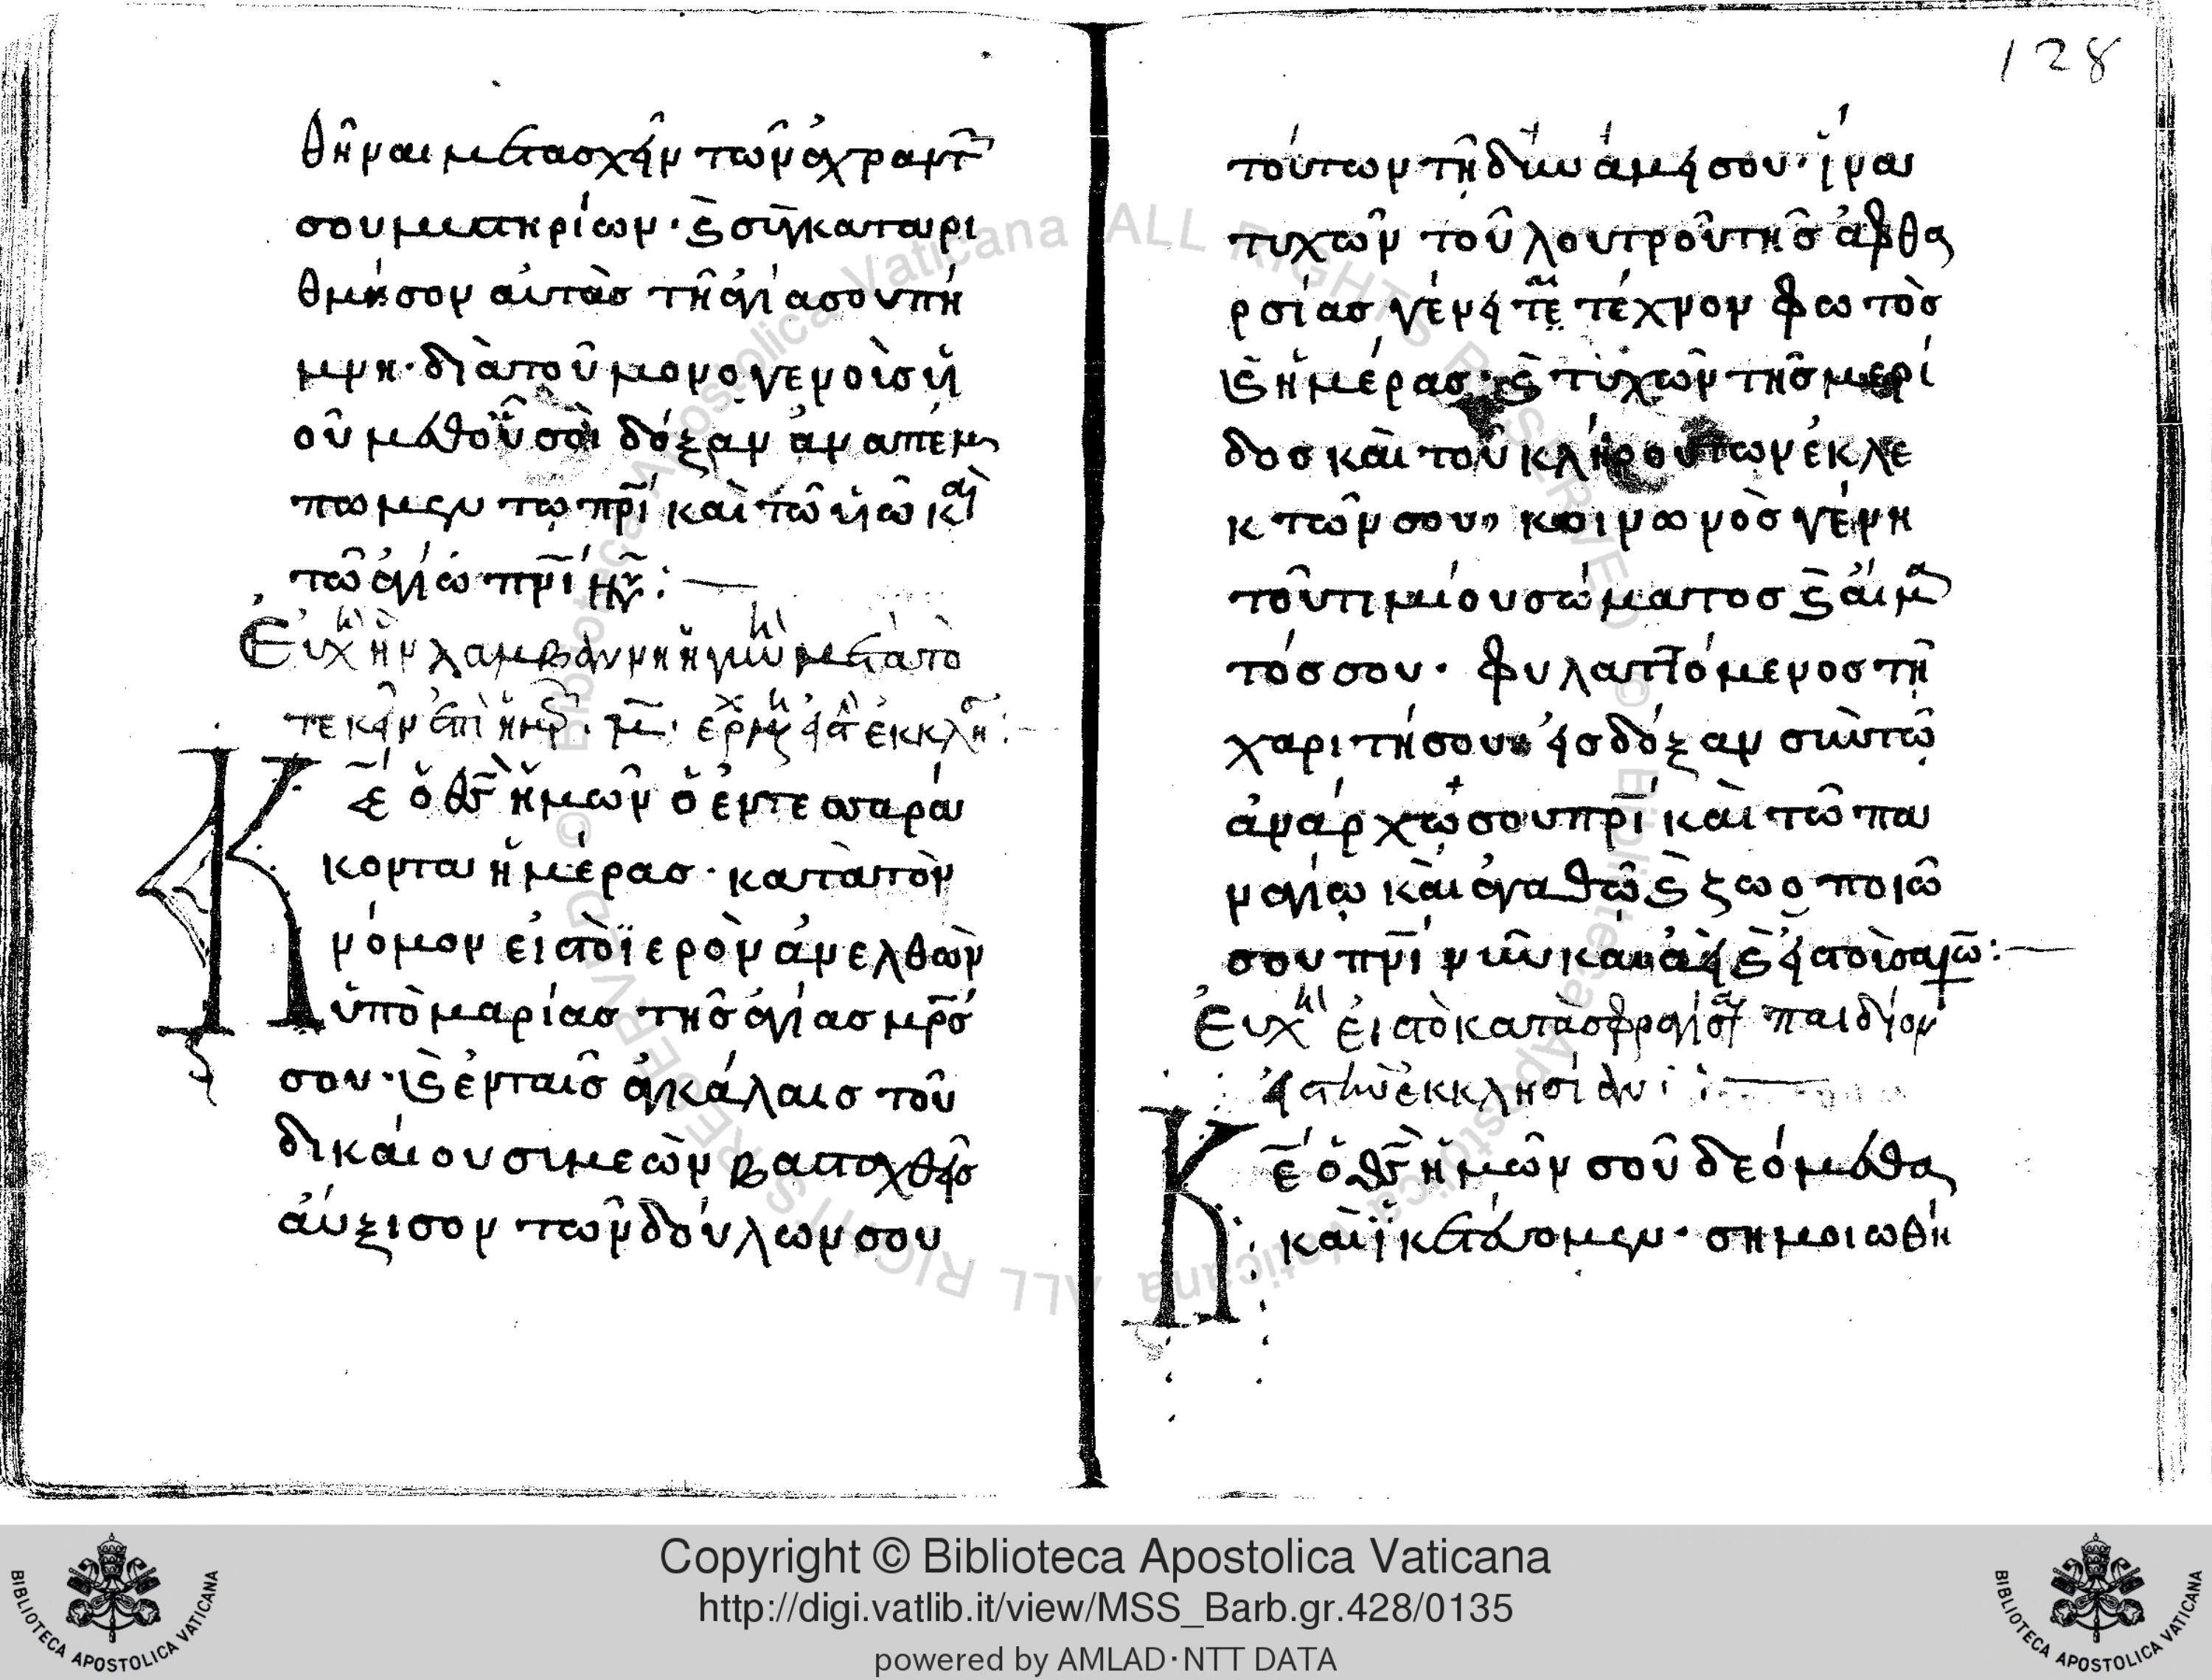 128
θῆναι μετασχεῖν τῶν ἀχράντ
σου μυστηρίων· ϗ συγκαταρι
θμήσον αὐτὰσ τῆ ἁγία σου πη
μνη· διὰ τοῦ μονογενοῦσ ὑι
οῦ μεθ οὗ σοὶ δόξαν ἀναπέμ
πωμεν τῶ πρῖ καὶ τῶ ὑιῶ καὶ
τῶ ἁγίω πνῖ νῦν:
Εὐχὴ ἣν λαμβάνει ἡ γυνὴ μετὰ τὸ
τεκεῖν ἐπὶ ἡμέρ. μ. ἐρχ εἰσ τ ἐκκλη:
Κ
ε ὁ θσ ἡμῶν ὁ ἐν τεσσαρά
κοντα ἡμέρασ· κατὰ τὸν
νόμον εἰσ τὸ ἱερὸν ἀνελθὼν
ὑπὸ μαρίασ τῆσ ἁγίασ μρσ
σου· ϗ ἐν ταῖσ ἀγκάλαισ τοῦ
δικαίου συμεὼν βασταχθεὶσ
ἀύξισον τῶν δούλων σου
τούτων τῆ δυνάμει σου· ἵνα
τυχῶν τοῦ λουτροῦ τῆσ ἀφθα
ρσίασ γένειται τέκνον φωτὸσ
ϗ ἡμέρασ· ϗ τυχῶν τῆσ μερί
δοσ καὶ τοῦ κλήρου τῶν ἐκλε
κτῶν σου, κοινωνὸσ γένη
τοῦ τιμίου σώματοσ ϗ αἵμα
τόσ σου· φυλαττόμενοσ τῆ
χάριτή σου εἰσ δόξαν σὺν τῶ
ἀνάρχω σου πρὶ καὶ τῶ πα
ναγίω καὶ ἀγαθῶ ϗ ζωοποιῶ
σου πνὶ νῦν καὶ ἀεὶ ϗ εἰσ τοὺσ αἰῶ:
Εὐχὴ εἰσ τὸ κατασφραγίσαι παιδίον
εἰσ τὴν ἐκκλησίαν:
Κ
ε ὁ θσ ἡμῶν σοῦ δεόμεθα
καὶ ἱκετεύομεν· σημοιωθή
Copyright © Biblioteca Apostolica Vaticana
http://digi.vatlib.it/view/MSS_Barb.gr.428/0135
powered by AMLAD·NTT DATA
BIBLIOTECA APOSTOLICA VATICANA
BIBLIOTECA APOSTOLICA VATICANA